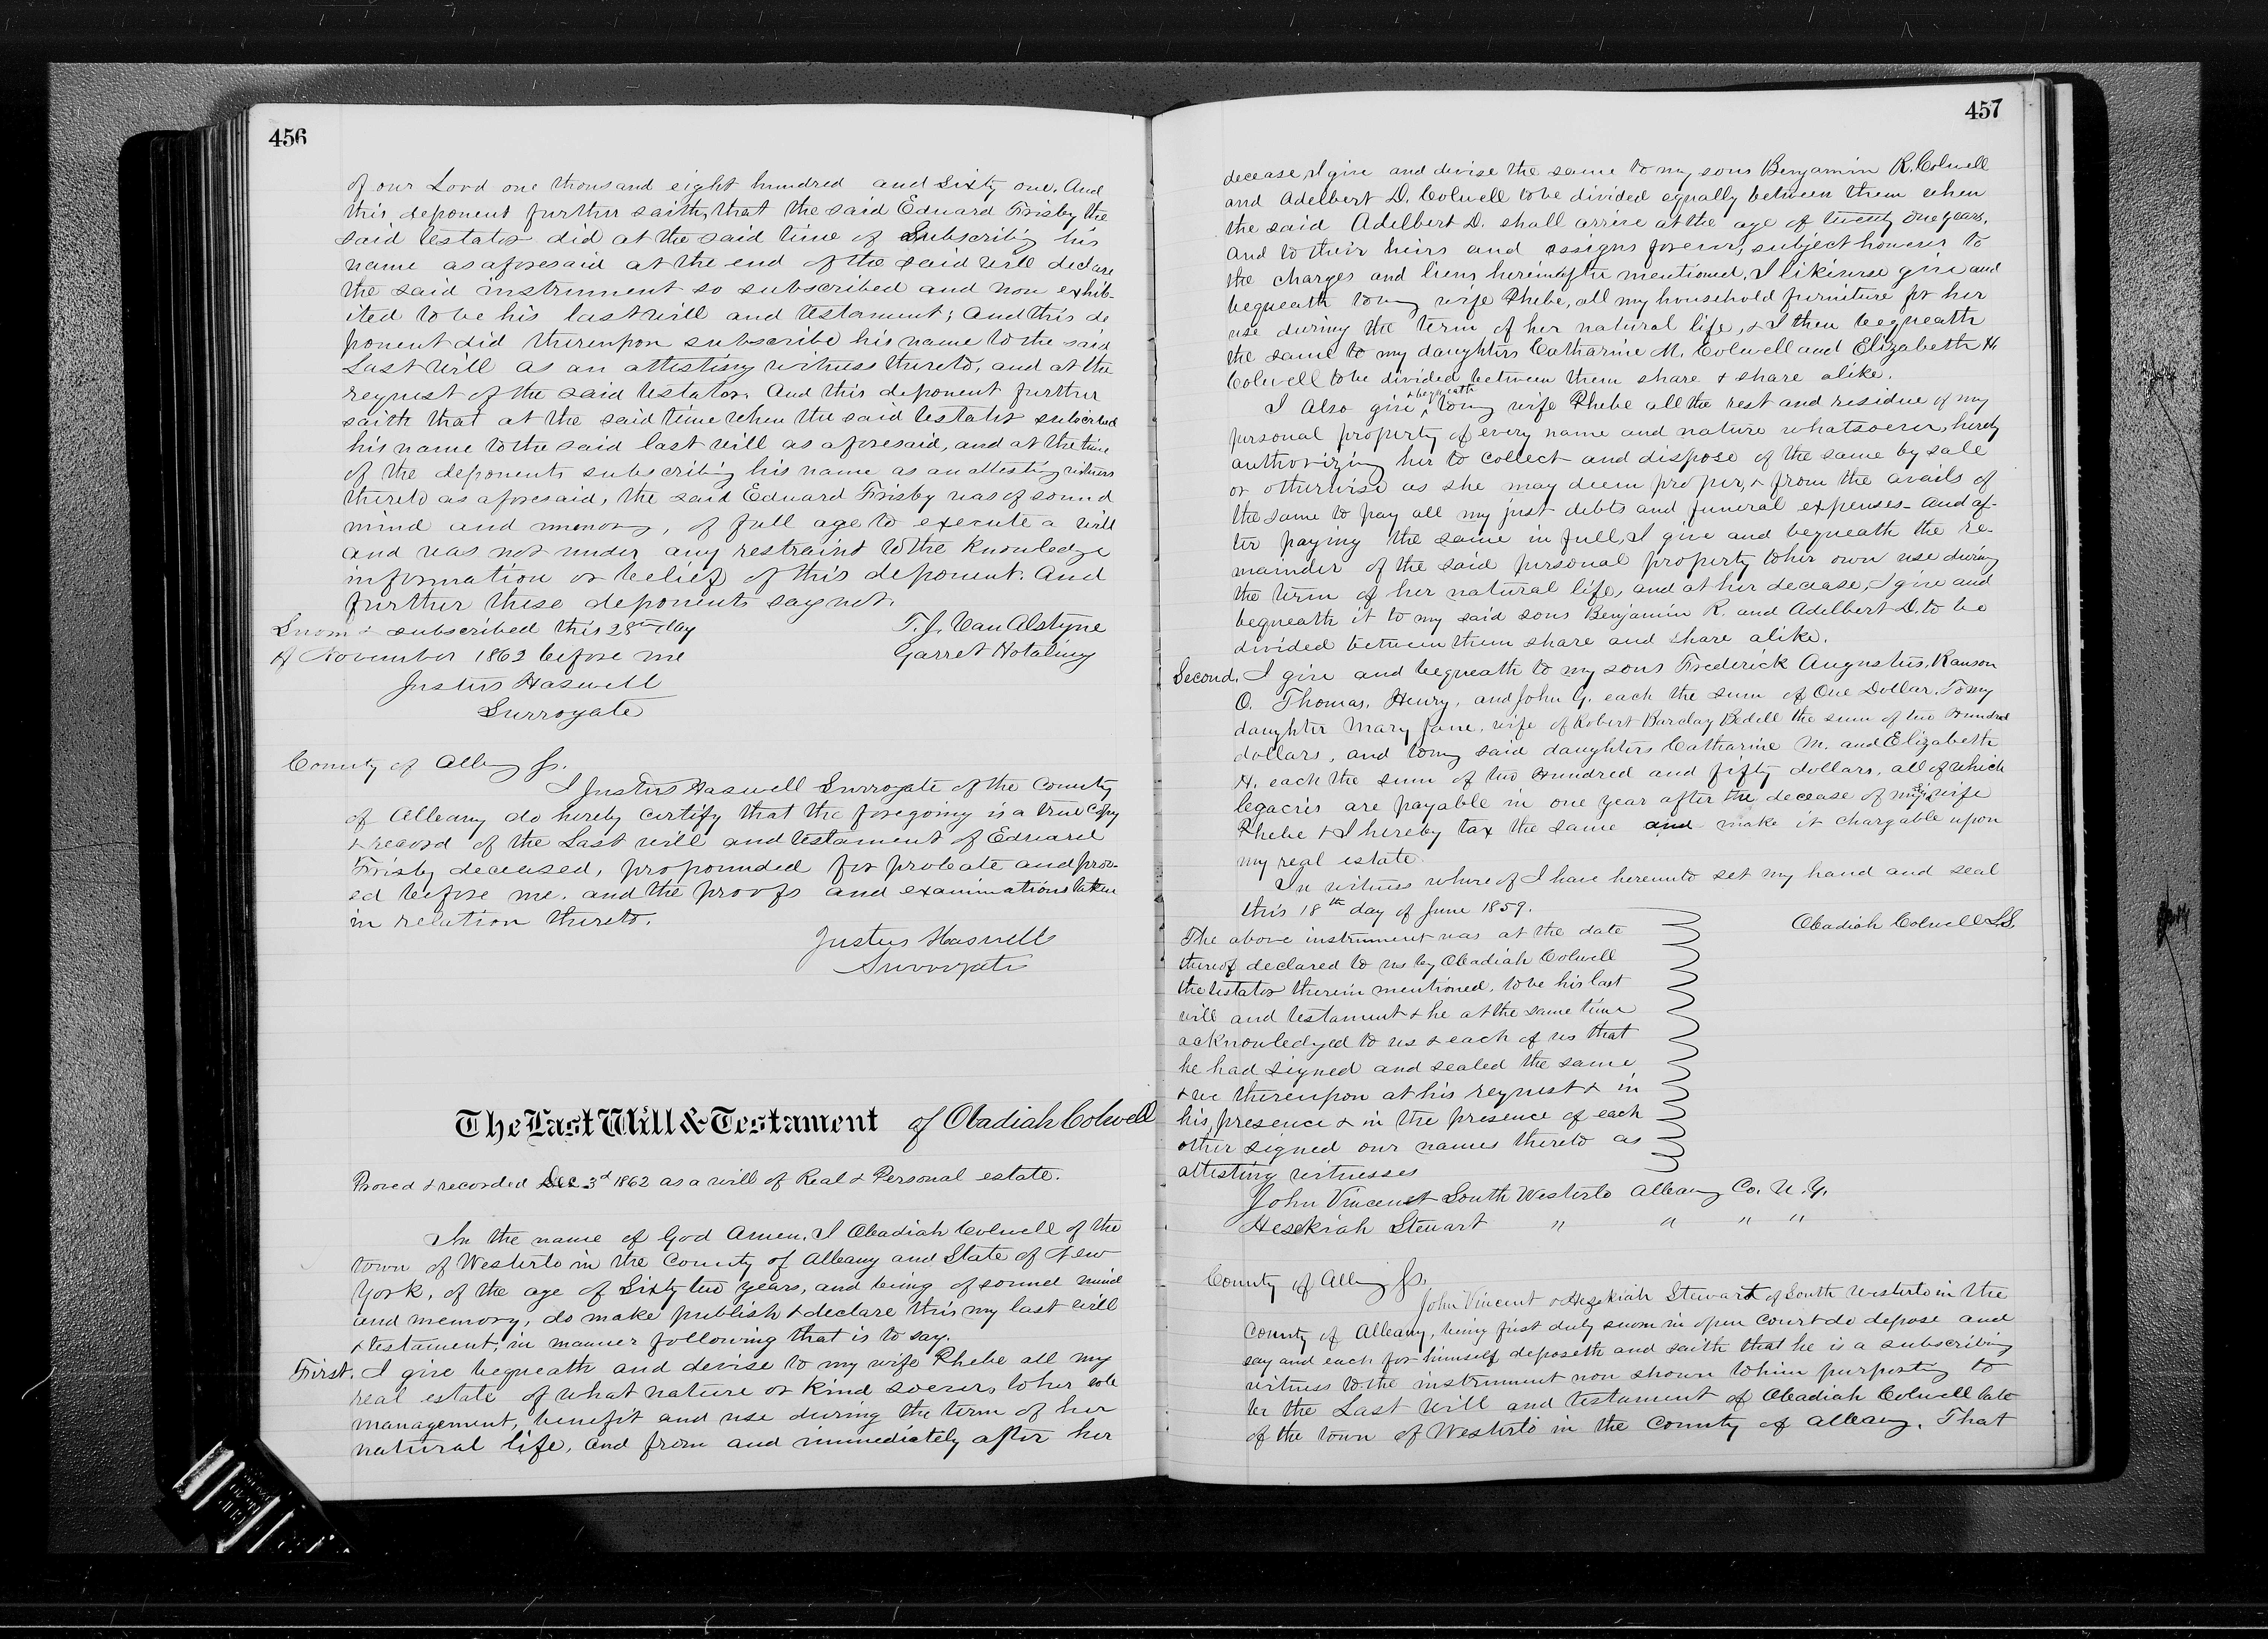 456
of our Lord one thousand eight hundred and Sixty one. And
this deponent further saith, that the said Edward Frisby the
said testator did at the said time of Subscribing his
name as aforesaid at the end of the said will declare
the said instrument so subscribed and now exhib-
ited to be his last will and testament; And this de
ponent did thereupon subscribe his name to the said
Last Will as an attesting witness thereto, and at the
request of the said testator. And this deponent further
saith that at the said time when the said testator subscribed
his name to the said last will as aforesaid, and at the time
of the deponents subscribing his name as an attesting witness
thereto as aforesaid, the said Edward Frisby was of sound
mind and memory, of full age to execute a will
and was not under any restraint to the knowledge
information or belief of this deponent. And
further these deponents say not.
Sworn & subscribed this 28th day
of November 1862 before me
Justus Haswell
Surrogate
T. J. Van Alstyne
Garret Hotaling
County of Albany ss.
I Justus Haswell Surrogate of the County
of Albany do hereby certify that the foregoing is a true copy
& record of the Last will and testament of Edward
Frisby deceased, propounded for probate and prov-
ed before me, and the proofs and examinations taken
in relation thereto.
Justus Haswell
Surrogate
The Last Will & Testament of Obadiah Colwell
Proved & recorded Dec 3d 1862 as a will of Real & Personal estate.
In the name of God Amen. I Obadiah Colwell of the
town of Westerlo in the County of Albany and State of New
York, of the age of Sixty two years, and being of sound mind
and memory, do make publish & declare this my last will
& testament, in manner following that is to say.
First. I give bequeath and devise to my wife Phebe all my
real estate of what nature or kind soever, to her sole
management, benefit and use during the term of her
natural life, and from and immediately after her
457
decease, I give and devise the same to my sons Benjamin R. Colwell
and Adelbert D. Colwell to be divided equally between them when
the said Adelbert D. shall arrive at the age of twenty one years.
And to their heirs and assigns forever, subject however to
the charges and liens hereinafter mentioned. I likewise give and
bequeath to my wife Phebe, all my household furniture for her
use during the term of her natural life, & I then bequeath
the same to my daughters Catharine M. Colwell and Elizabeth H.
Colwell to be divided between them share & share alike.
I Also give & bequeath to my wife Phebe all the rest and residue of my
personal property of every name and nature whatsoever, hereby
authorizing her to collect and dispose of the same by sale
or otherwise as she may deem proper, & from the avails of
the same to pay all my just debts and funeral expenses - and af-
ter paying the same in full, I give and bequeath the re-
mainder of the said personal property to her own use during
the term of her natural life, and at her decease, I give and
bequeath it to my said sons Benjamin R. and Adelbert D. to be
divided between them share and share alike.
Second. I give and bequeath to my sons Frederick Augustus, Ranson
O. Thomas, Henry, and John G. each the sum of One Dollar. To my
daughter Mary Jane, wife of Robert Barclay Bedell the sum of two Hundred
dollars, and to my said daughters Catharine M. and Elizabeth
H. each the sum of two Hundred and fifty dollars, all of which
legacies are payable in one year after the decease of my sd wife
Phebe & I hereby tax the same and make it chargable upon
my real estate
In witness whereof I have hereunto set my hand and seal
this 18th day of June 1859.
Obadiah Colwell L.S.
The above instrument was at the date
thereof declared to us by Obadiah Colwell
the testator therein mentioned, to be his last
will and testament & he at the same time
acknowledged to us & each of us that
he had signed and sealed the same
& we thereupon at his request & in
his presence & in the presence of each
other signed our names thereto as
attesting witnesses
John Vincent South Westerlo Albany Co. N.Y.
Hesekiah Stewart " " " "
County of Albany ss.
John Vincent & Hezekiah Stewart of South Westerlo in the
County of Albany, being first duly sworn in open Court do depose and
say and each for himself deposeth and saith that he is a subscribing
witness to the instrument now shown to him purporting to
be the Last Will and testament of Obadiah Colwell late
of the town of Westerlo in the County of Albany. That